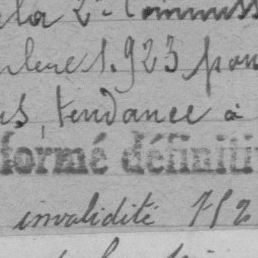 la 2e Commiss
bre 1.923 pou
us, tendance à
formé définiti
invalidité